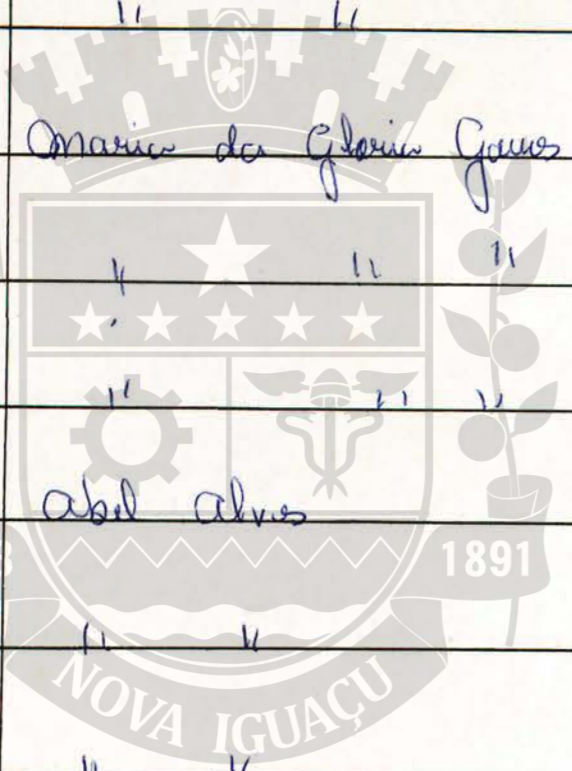 " "
Maria da Gloria Gomes
" " "
" " "
Abel Alves
1891
" "
NOVA IGUAÇU
" "